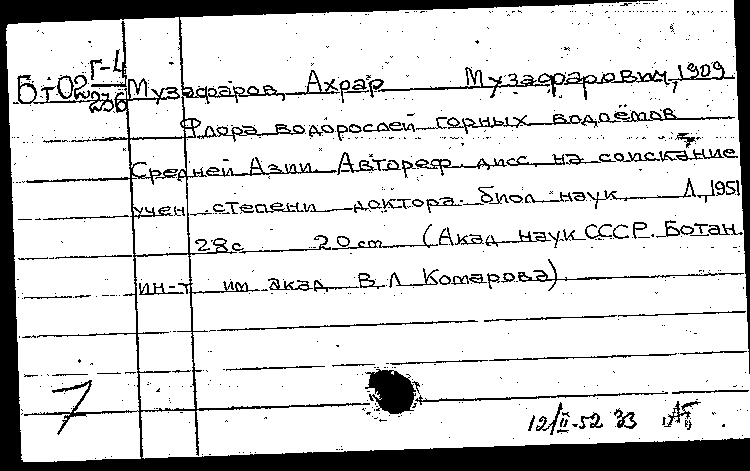 Г-4
БтО2 Музафаров, Ахрар Музафарович, 1909
Флора водорослей горных водоёмов
Средней Азии. Автореф. дисс. на соискание
учен. степени доктора биол. наук. Л., 1951
28с 20 cm (Акад. наук СССР. Ботан.
ин-т им акад В Л Комарова).
7
12/II-52 33